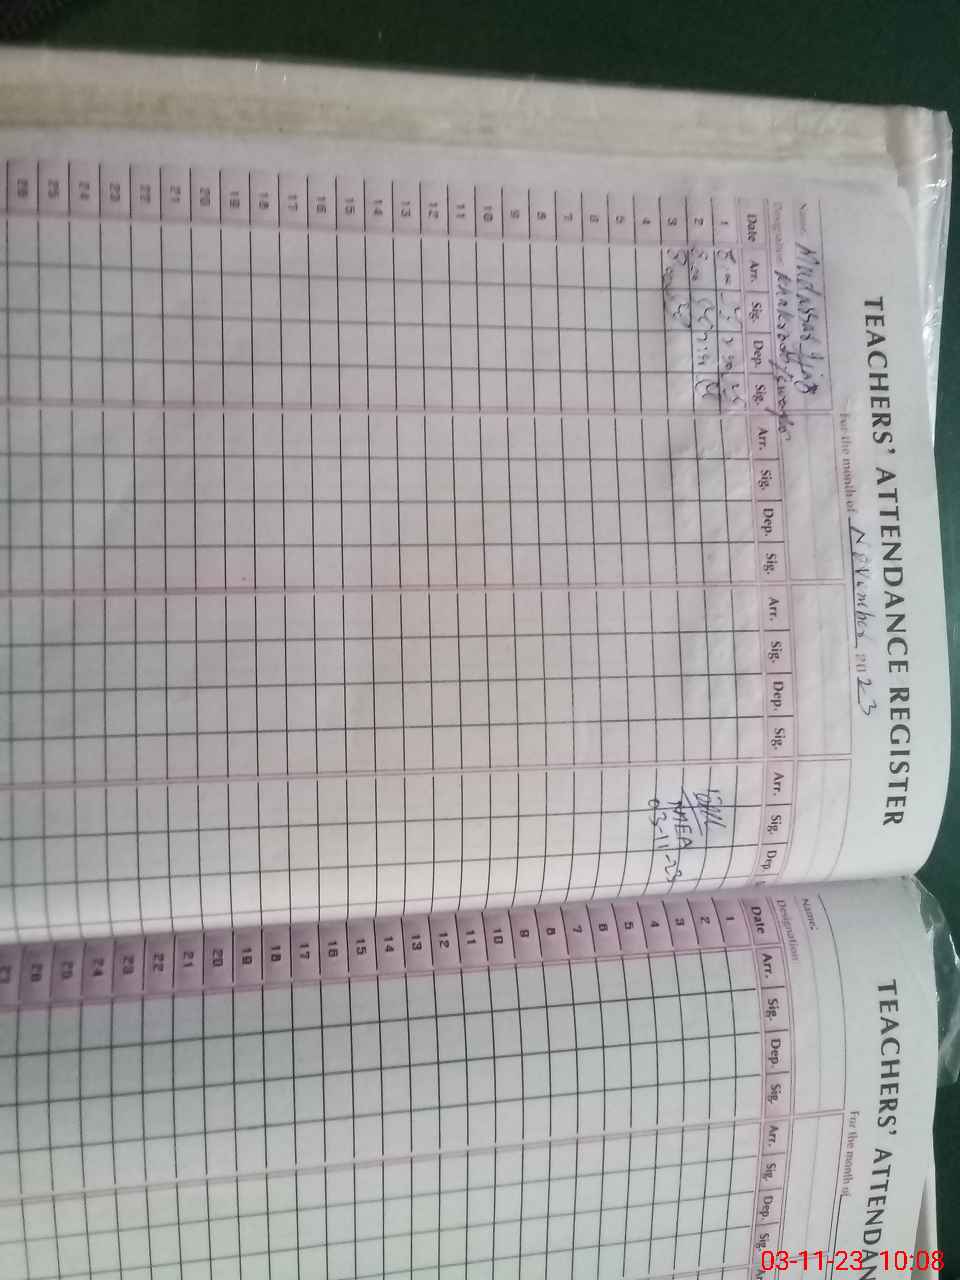 TEACHERS' ATTENDANCE REGISTER
For the month of November 2023
Name:
Designation:
Date Arr. Sig. Dep. Sig. Arr. Sig. Dep. Sig. Arr. Sig. Dep. Sig. Arr. Sig. Dep.
1
2
3
MEA
03-11-23
4
5
6
7
8
9
10
11
12
13
14
15
16
17
18
19
20
21
22
23
24
25
26
TEACHERS' ATTENDAN
For the month of
Name:
Designation:
Date Arr. Sig. Dep. Sig. Arr. Sig. Dep. Sig.
1
2
3
4
5
6
7
8
9
10
11
12
13
14
15
16
17
18
19
20
21
22
23
24
25
26
27
03-11-23 10:08